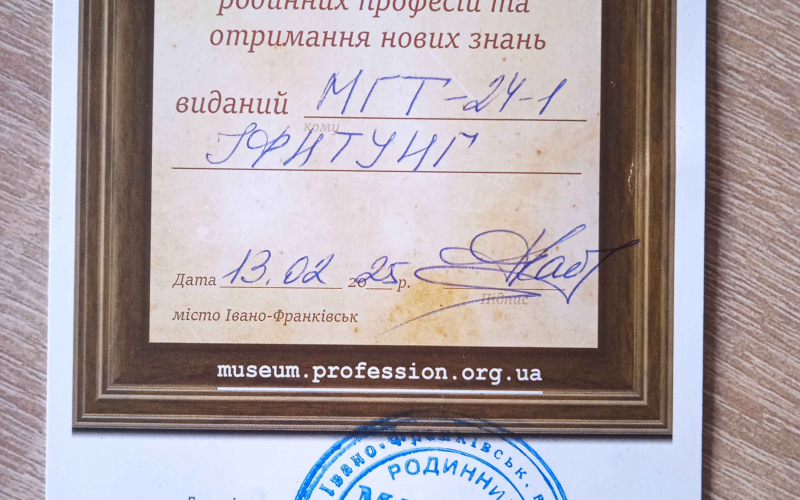 родинних професій та
отримання нових знань
виданий МГТ-24-1
кому
ІФНТУНГ
Дата 13.02 2025 р.
Підпис
місто Івано-Франківськ
museum.profession.org.ua
Івано-Франківськ
РОДИННИ